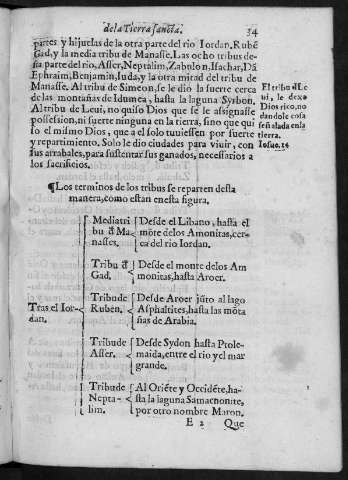 de la Tierra sancta. 34
partes y hijuelas de la otra parte del rio Iordan, Rubẽ
Gad, y la media tribu de Manasse, Las ocho tribus de-
sta parte del rio, Asser, Neptalim, Zabulon, Isachar, Dã
Ephraim, Benjamin, Iuda, y la otra mitad del tribu de
Manasse. Al tribu de Simeon, se le dio la suerte cerca
de las montañas de Idumea, hasta la laguna Syrbon,
Al tribu de Leui, no quiso Dios que se le assignasse
possession, ni suerte ninguna en la tierra, sino que qui
so el mismo Dios, que a el solo tuuiessen por suerte
y repartimiento. Solo le dio ciudades para viuir, con
sus arrabales, para sustentar sus ganados, necessarios a
los sacrificios.
El tribu đ Le
ui, le dexo
Dios rico, no
dandole cosa
señalada en la
tierra.
Iosue. 14
¶Los terminos de los tribus se reparten desta
manera, como estan en esta figura.
Tras el Ior-
dan.
Mediatri
bu đ Ma
nasses.
Desde el Libano, hasta el
mõte delos Amonitas, cer-
ca del rio Iordan.
Tribu đ
Gad.
Desde el monte delos Am
monitas, hasta Aroer.
Tribu de
Ruben.
Desde Aroer jũto al lago
Asphaltites, hasta las mõta
ñas de Arabia.
Tribu de
Asser.
Desde Sydon hasta Ptole-
maida, entre el rio y el mar
grande.
Tribu de
Nepta-
lim.
Al Oriẽte y Occidẽte, ha-
sta la laguna Samachonite,
por otro nombre Maron.
E 2 Que